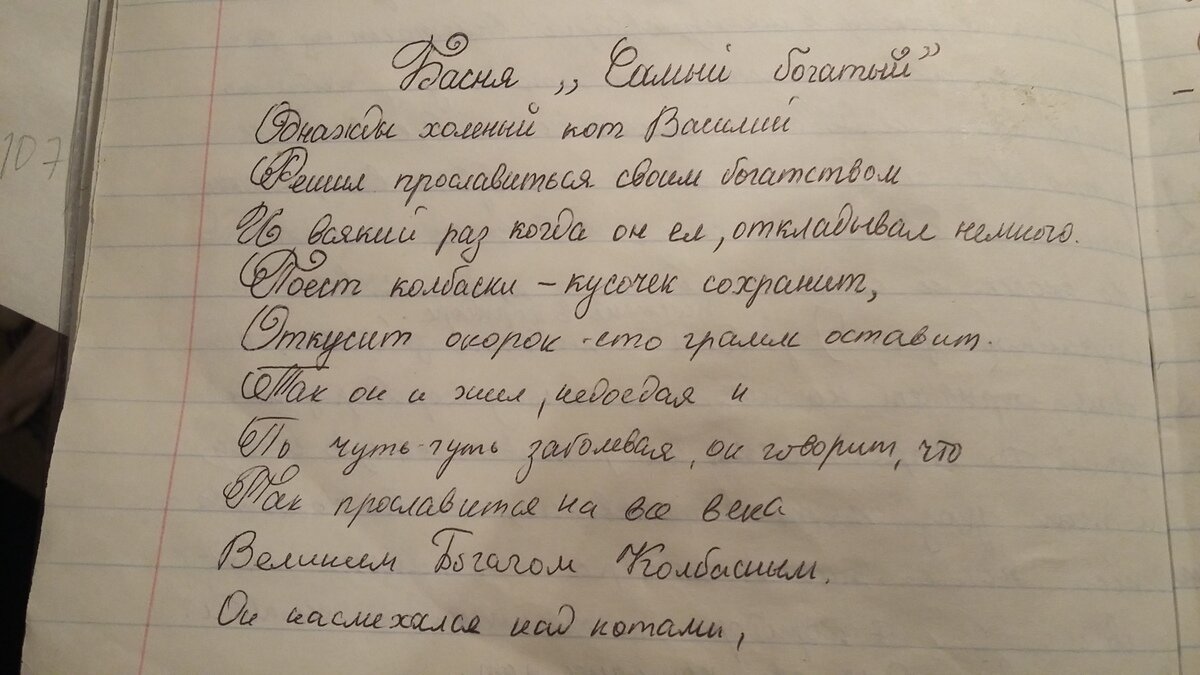 Басня ,, Самый богатый”
Однажды холеный кот Василий
Решил прославиться своим богатством
И всякий раз когда он ел, откладывал немного.
Поест колбаски – кусочек сохранит,
Откусит окорок - сто грамм оставит.
Так он и жил, недоедая и
По чуть-чуть заболевая, он говорит, что
Так прославится на все века
Великим Богачом Колбасным.
Он насмехался над котами,
107